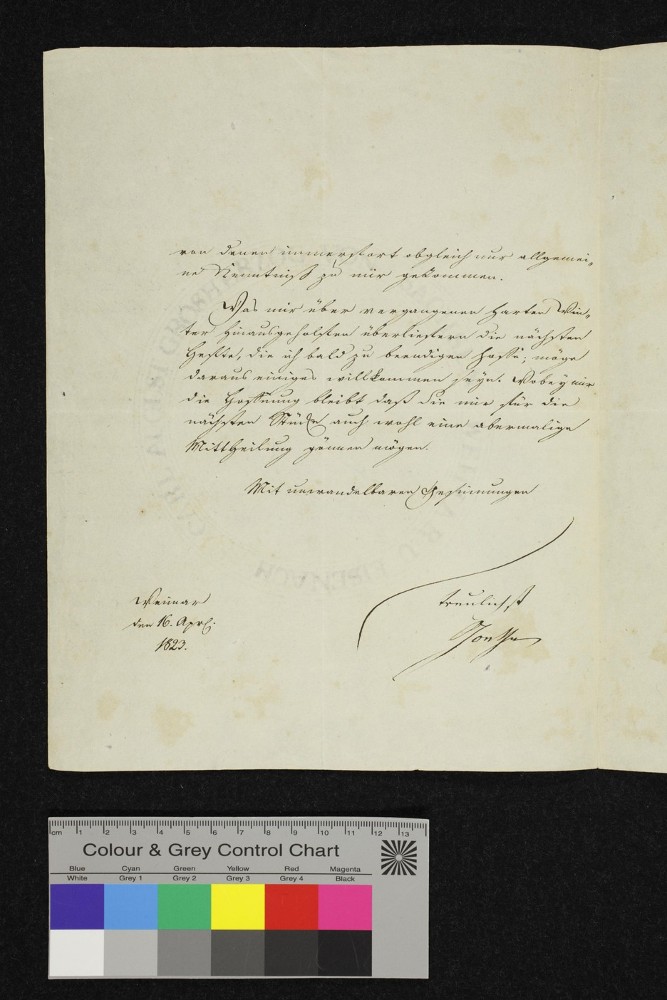 von denen immerfort obgleich nur allgemei-
ne Kenntniß zu mir gekommen.
Was mir über vergangenen harten Win-
ter hinausgeholfen überliefern die nächsten
Hefte, die ich bald zu beendigen hoffe; möge
daraus einiges willkommen seyn. Wobey mir
die Hoffnung bleibt daß Sie mir für die
nächsten Stücke auch wohl eine abermalige
Mittheilung gönnen mögen.
Mit unwandelbaren Gesinnungen
treulichst
Goethe
Weimar
den 16. Apr.
1823.
EISENACH
cm 1 2 3 4 5 6 7 8 9 10 11 12 13
Colour & Grey Control Chart
Blue Cyan Green Yellow Red Magenta
White Grey 1 Grey 2 Grey 3 Grey 4 Black